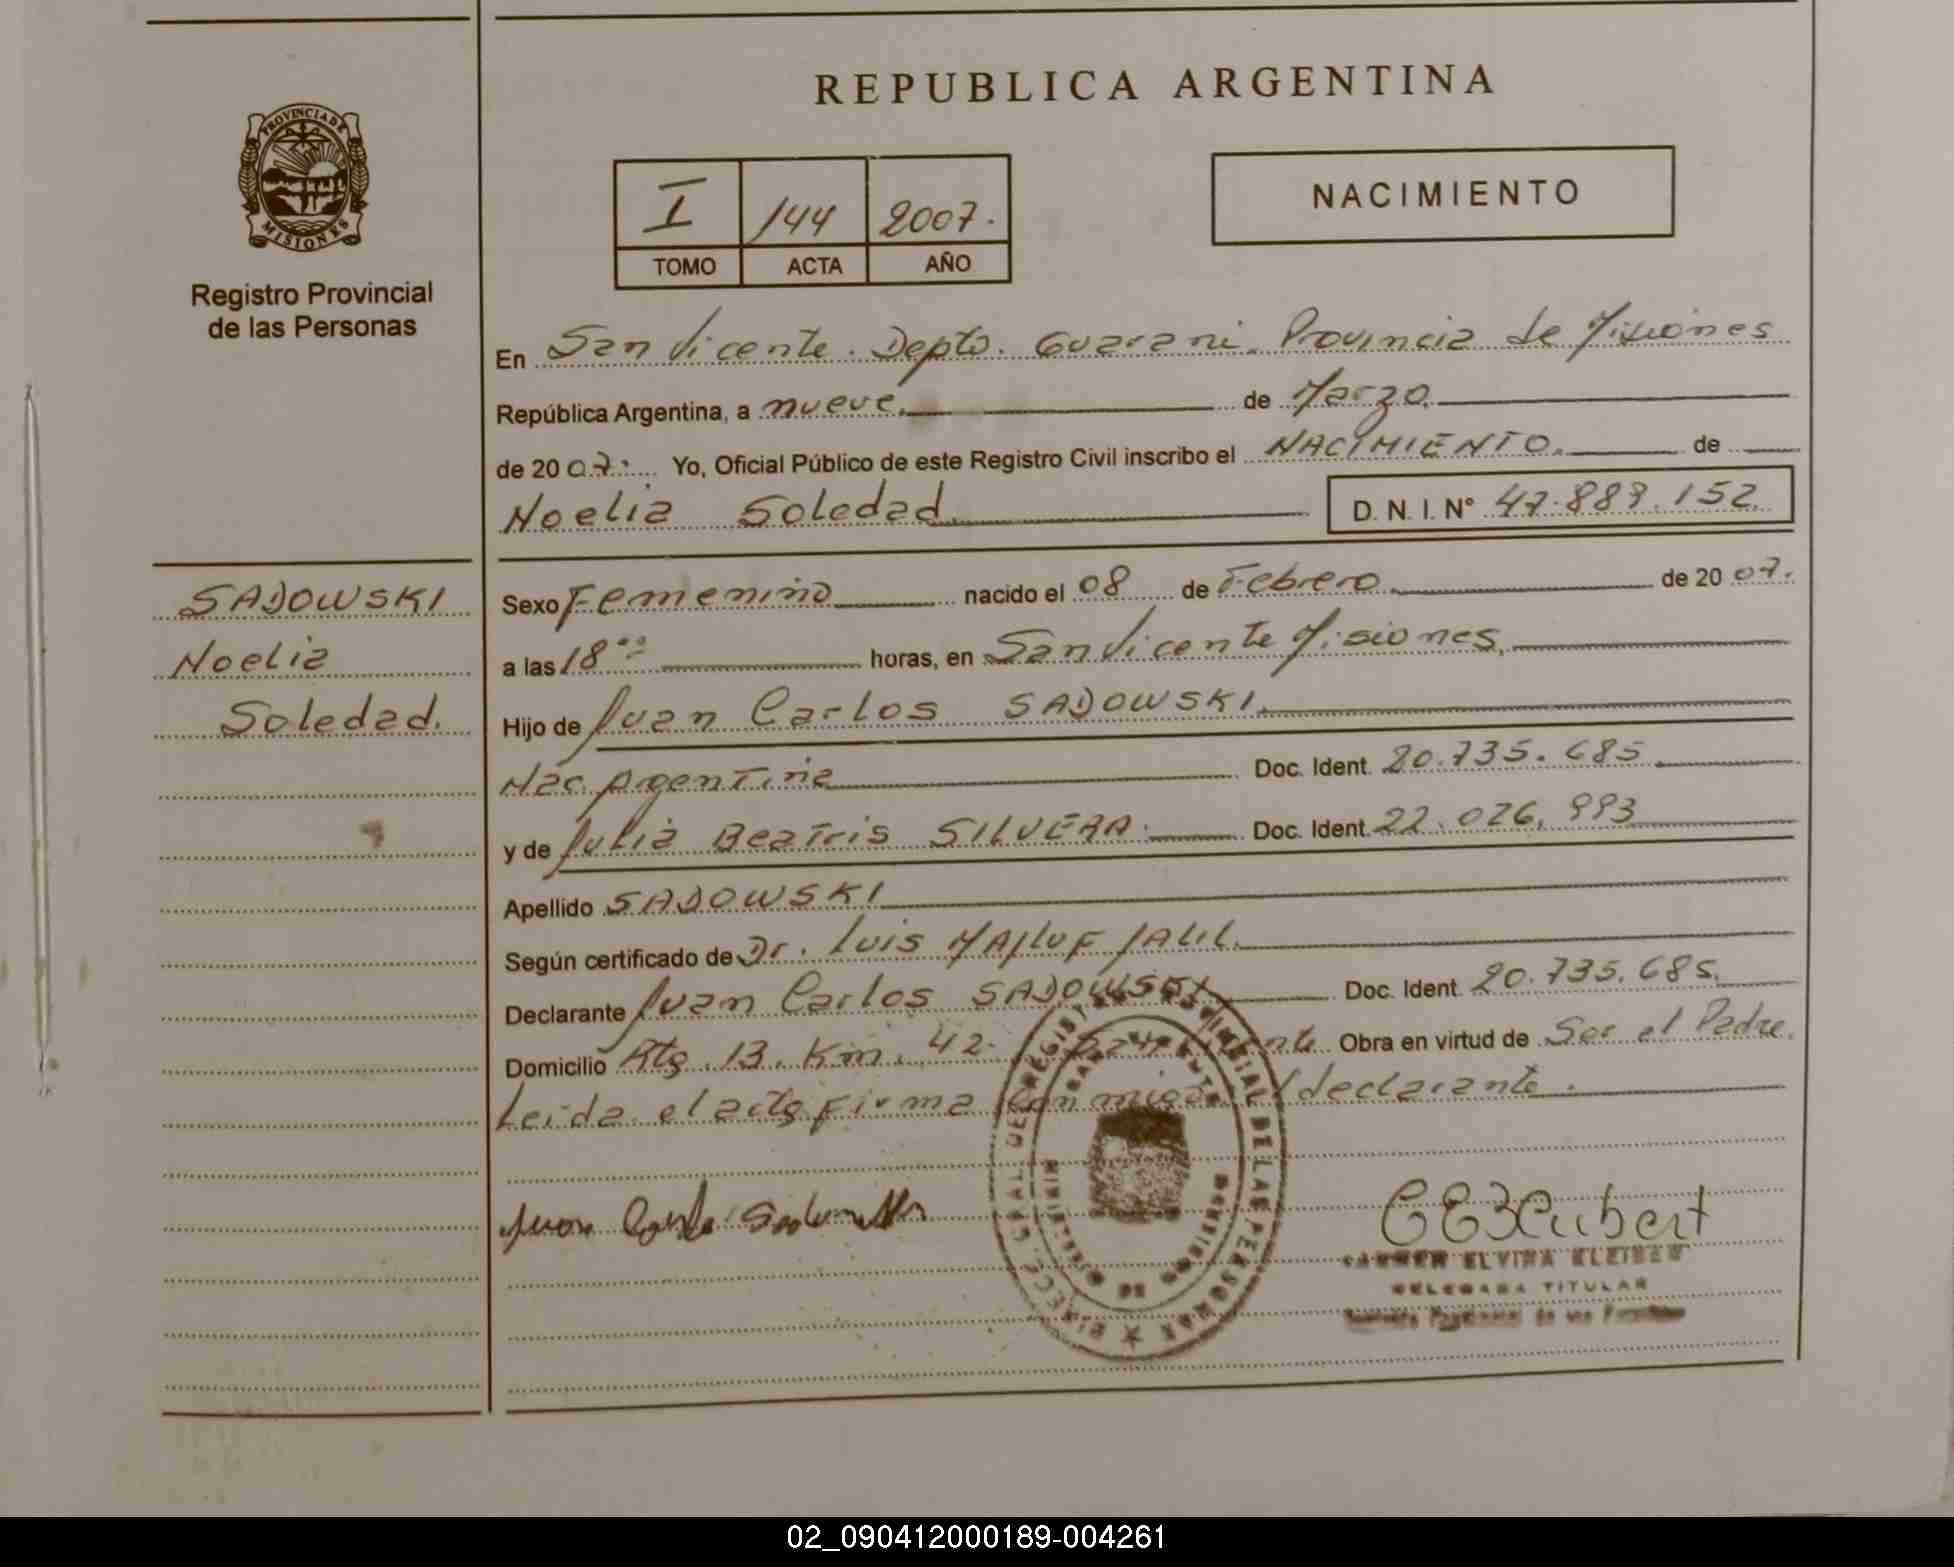 REPUBLICA ARGENTINA
PROVINCIA DE
MISIONES
Registro Provincial
de las Personas
I 144 2007.
TOMO ACTA AÑO
NACIMIENTO
En San Vicente. Depto. Guarani. Provincia de Misiones
República Argentina, a nueve. de Marzo.
de 2007. Yo, Oficial Público de este Registro Civil inscribo el NACIMIENTO. de
Noelia Soledad
D. N. I. Nº 47.887.152.
SADOWSKI
Noelia
Soledad.
Sexo Femenino nacido el 08 de Febrero de 2007.
a las 18 00 horas, en San Vicente Misiones.
Hijo de Juan Carlos SADOWSKI.
Nac. Argentina Doc. Ident. 20.735.685
y de Julia Beatris SILVERA. Doc. Ident. 22.026.993
Apellido SADOWSKI
Según certificado de Dr. Luis MAJLUF JALIL.
Declarante Juan Carlos SADOWSKI Doc. Ident. 20.735.685.
Domicilio Rta. 13. Km. 42. San Vicente Obra en virtud de Ser el Padre.
Leida el acta firma conmigo el declarante.
DIRECC. GRAL. DEL REGISTRO PROVINCIAL DE LAS PERSONAS
CARMEN ELVIRA
DELEGADA TITULAR
Registro Provincial de las Personas
02_090412000189-004261